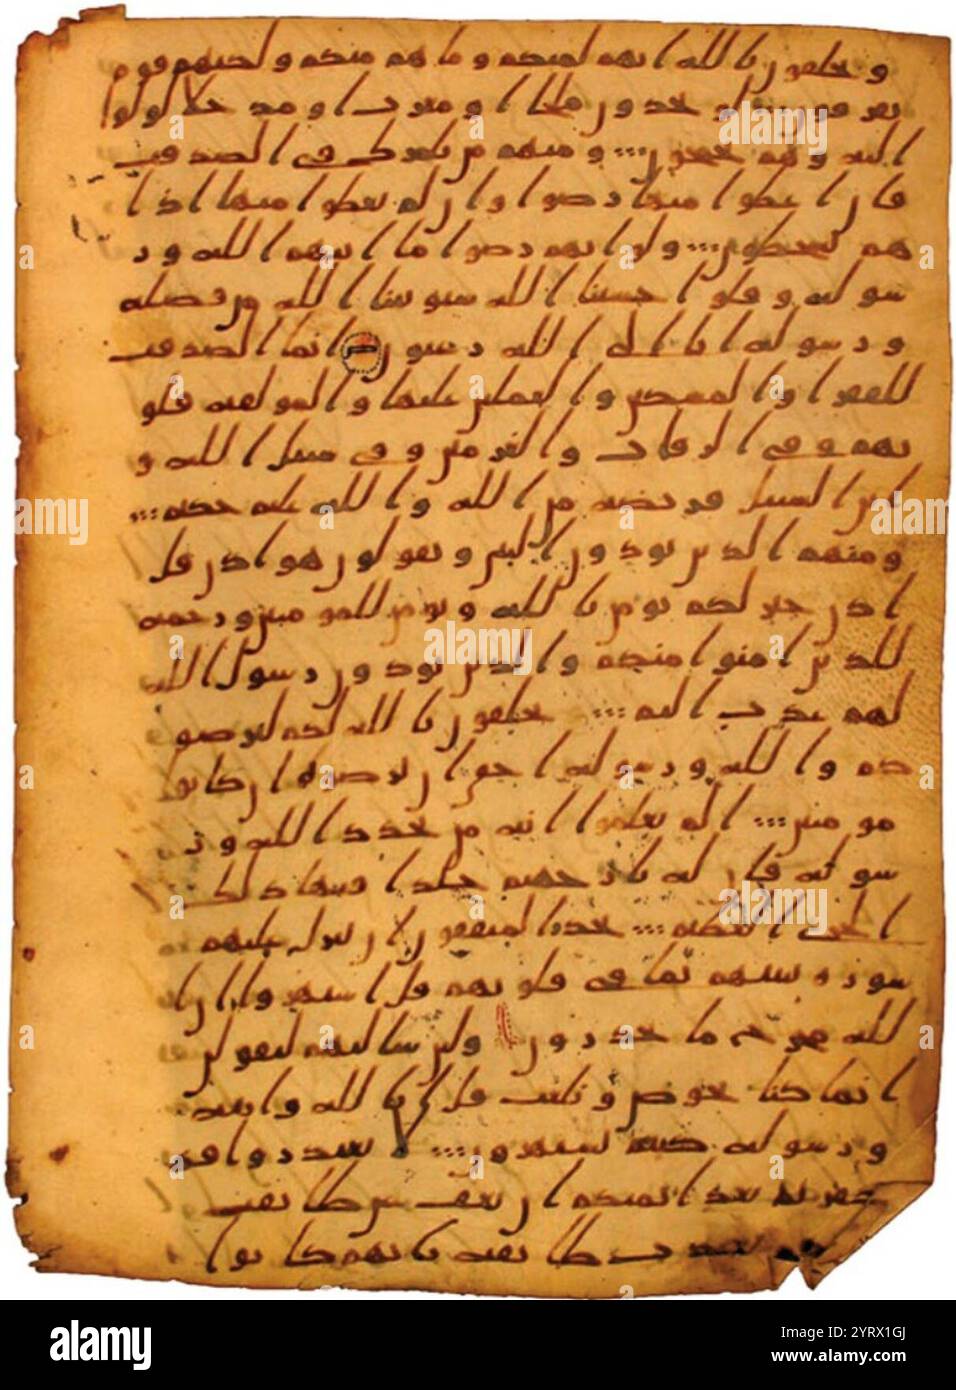 و يحلفون بالله انهم لمنكم و ما هم منكم و لكنهم قوم
يفرقون لو يجدون ملجا او مغرت او مدخلا لولوا
اليه و هم يجمحون و منهم من يلمزك في الصدقت
فان اعطوا منها رضوا و ان لم يعطوا منها اذا
هم يسخطون و لو انهم رضوا ما اتيهم الله و ر
سوله و قلوا حسبنا الله سيوتينا الله من فضله
و رسوله انا الى الله رغبون انما الصدقت
للفقرا و المسكين و العملين عليها و المولفه قلو
بهم و في الرقاب و الغرمين و في سبيل الله و
ابن السبيل فريضه من الله و الله عليم حكيم
و منهم الذين يوذون النبي و يقولون هو اذن قل
اذن خير لكم يومن بالله و يومن للمومنين و رحمه
للذين امنوا منكم و الذين يوذون رسول الله
لهم عذب اليم يحلفون بالله لكم ليرضو
كم و الله و رسوله احق ان يرضوه ان كانوا
مومنين الم يعلموا انه من يحدد الله و ر
سوله فان له نار جهنم خلدا فيها ذلك
الخزي العظيم يحذر المنفقون ان تنزل عليهم
سوره تنبيهم بما في قلوبهم قل استهزوا ان ا
لله مخرج ما تحذرون ولين سالتهم ليقولن
انما كنا نخوض و نلعب قل ابالله و ايته
و رسوله كنتم تستهزون لا تعتذروا قد
كفرتم بعد ايمنكم ان نعف عن طايفه
نعذب طايفه بانهم كانوا
alamy
Image ID: 2YRX1GJ
www.alamy.com